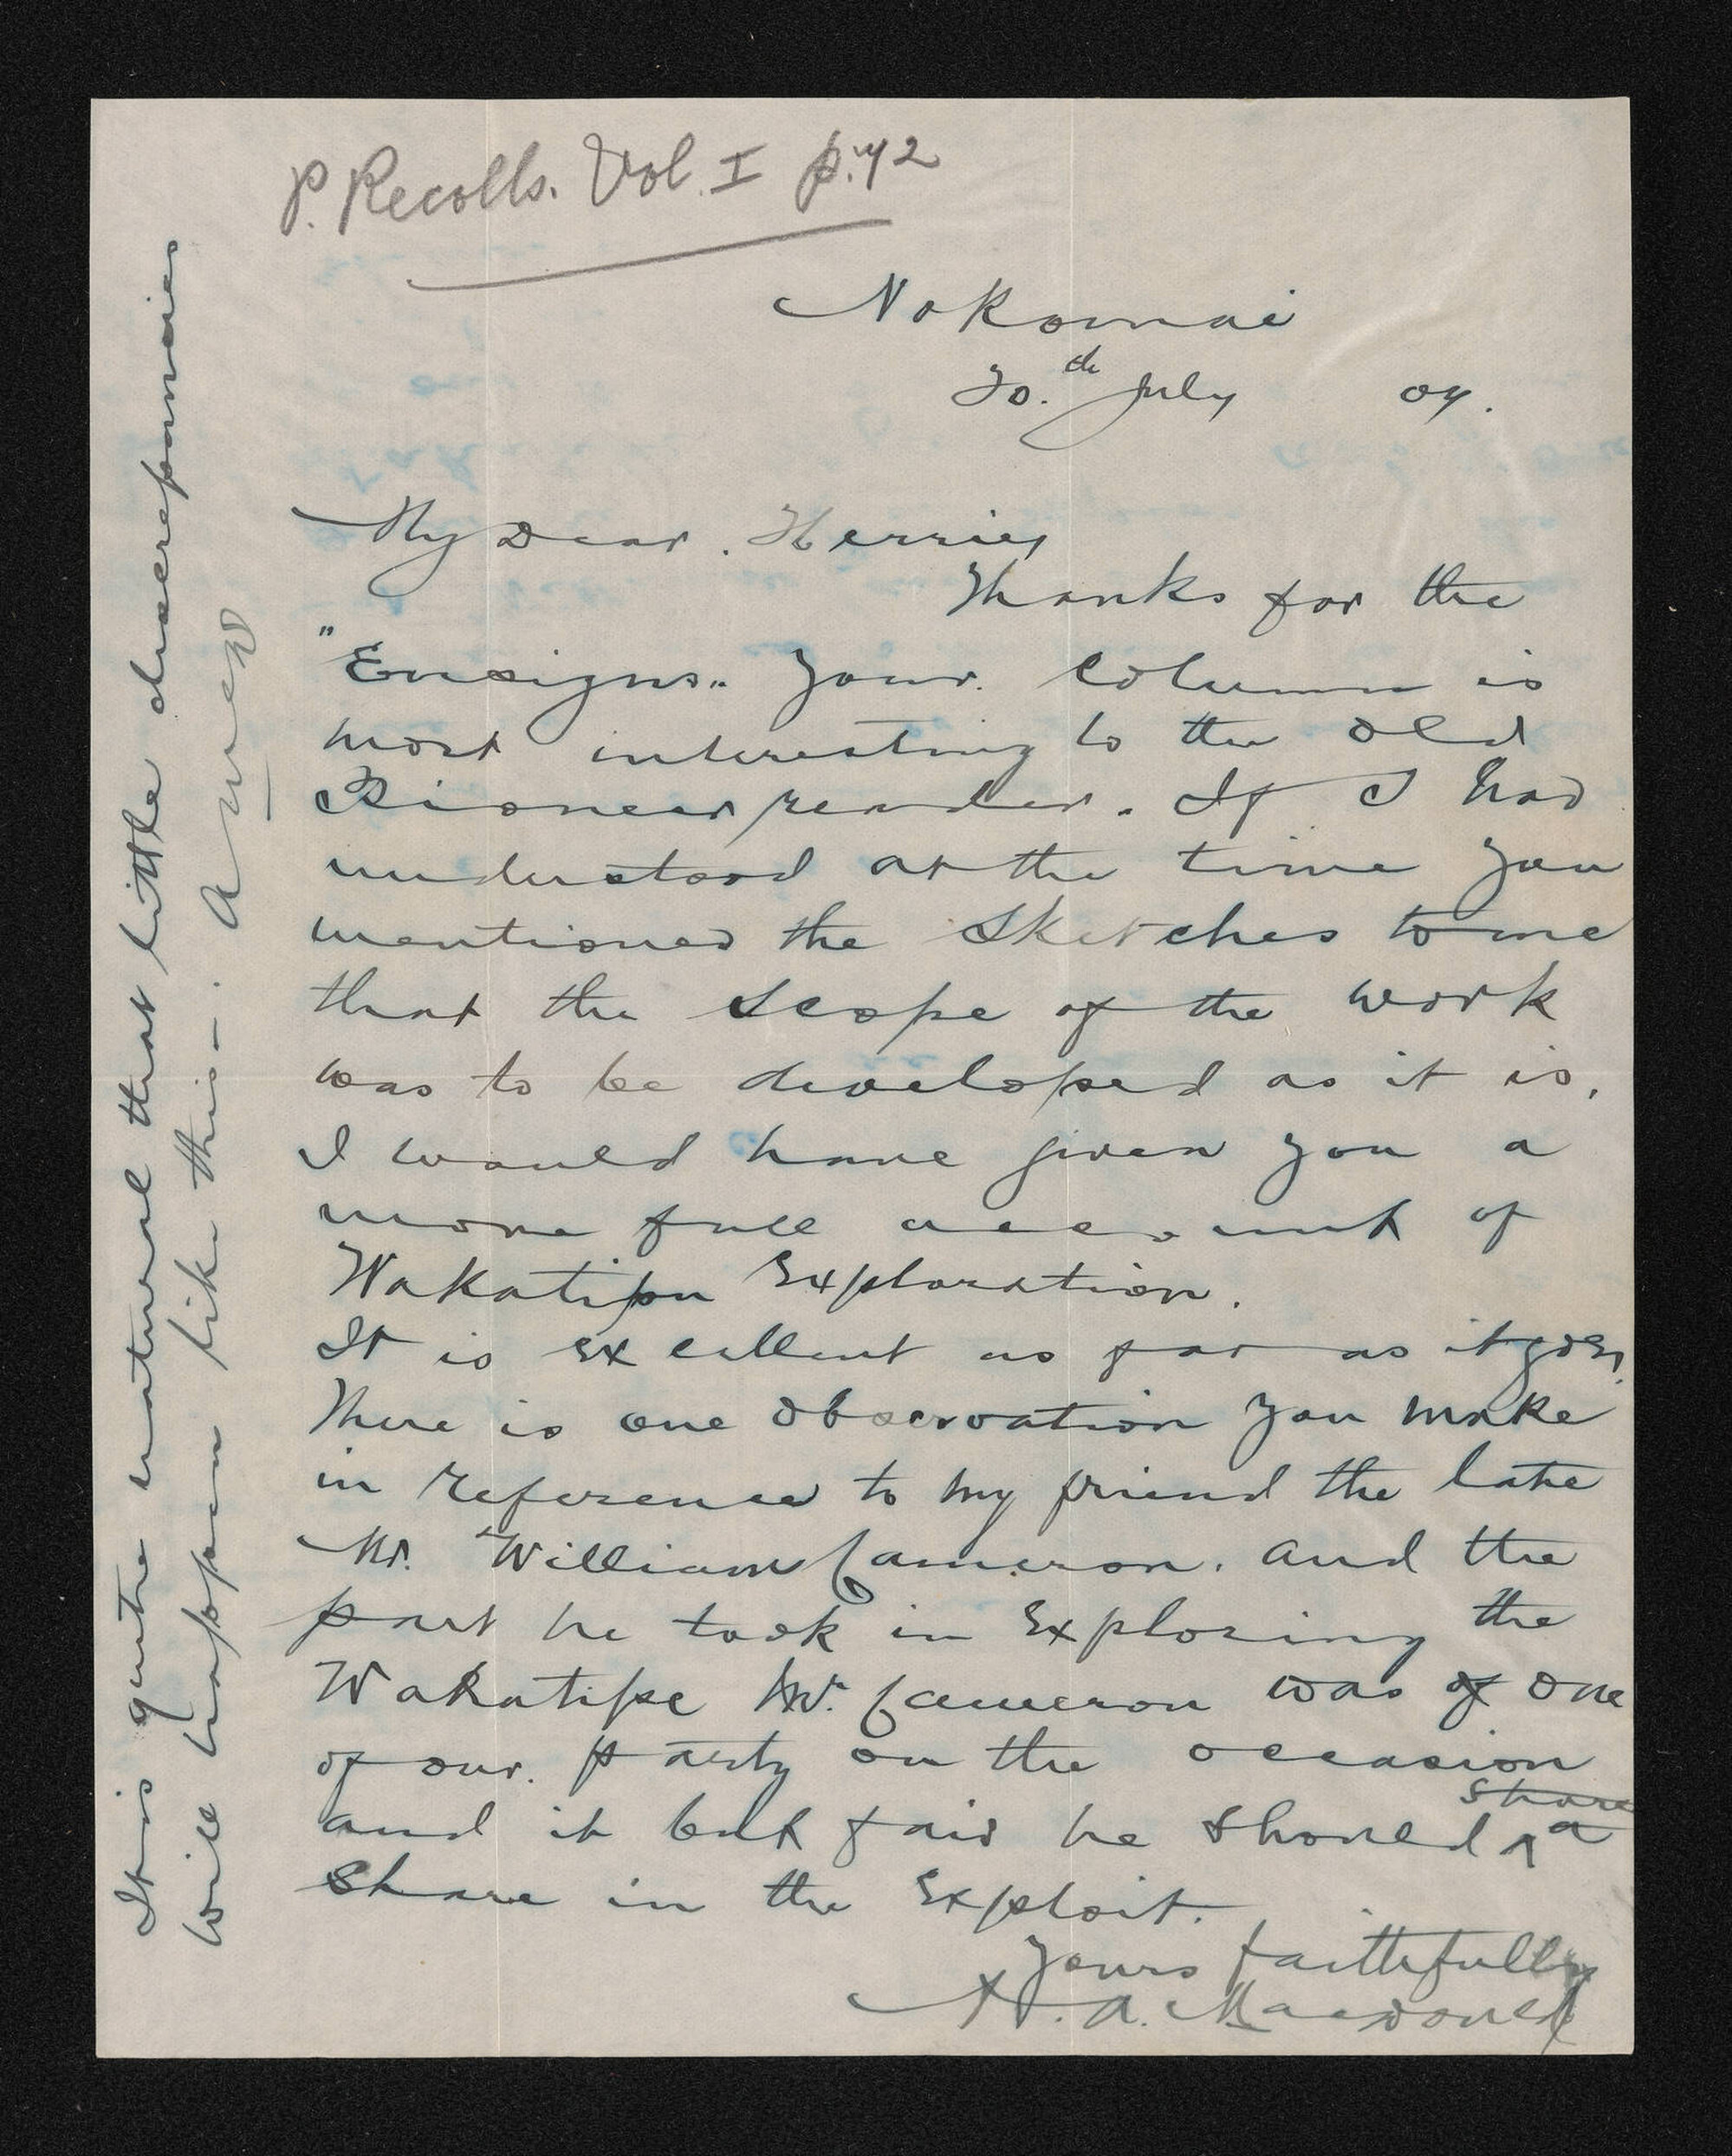 P. Recolls. Vol. I p. 72
Nokomai
30.th July 07.
My Dear. Herries
Thanks for the
"Ensigns" Your. column is
most interesting to the old
Pioneer reader. If I had
understood at the time you
mentioned the sketches to me
that the scope of the work
was to be developed as it is,
I would have given you a
more full account of
Wakatipu Exploration.
It is excellent as far as it goes,
There is one observation you make
in reference to my friend the late
Mr. William Cameron. and the
part he took in Exploring the
Wakatipe Mr. Cameron was of one
of our. party on the occasion
and it but fair he should share a
share in the Exploit.
Yours faithfully
A. Macdonald
It is quite natural that little discrepancies
will happen like this —.